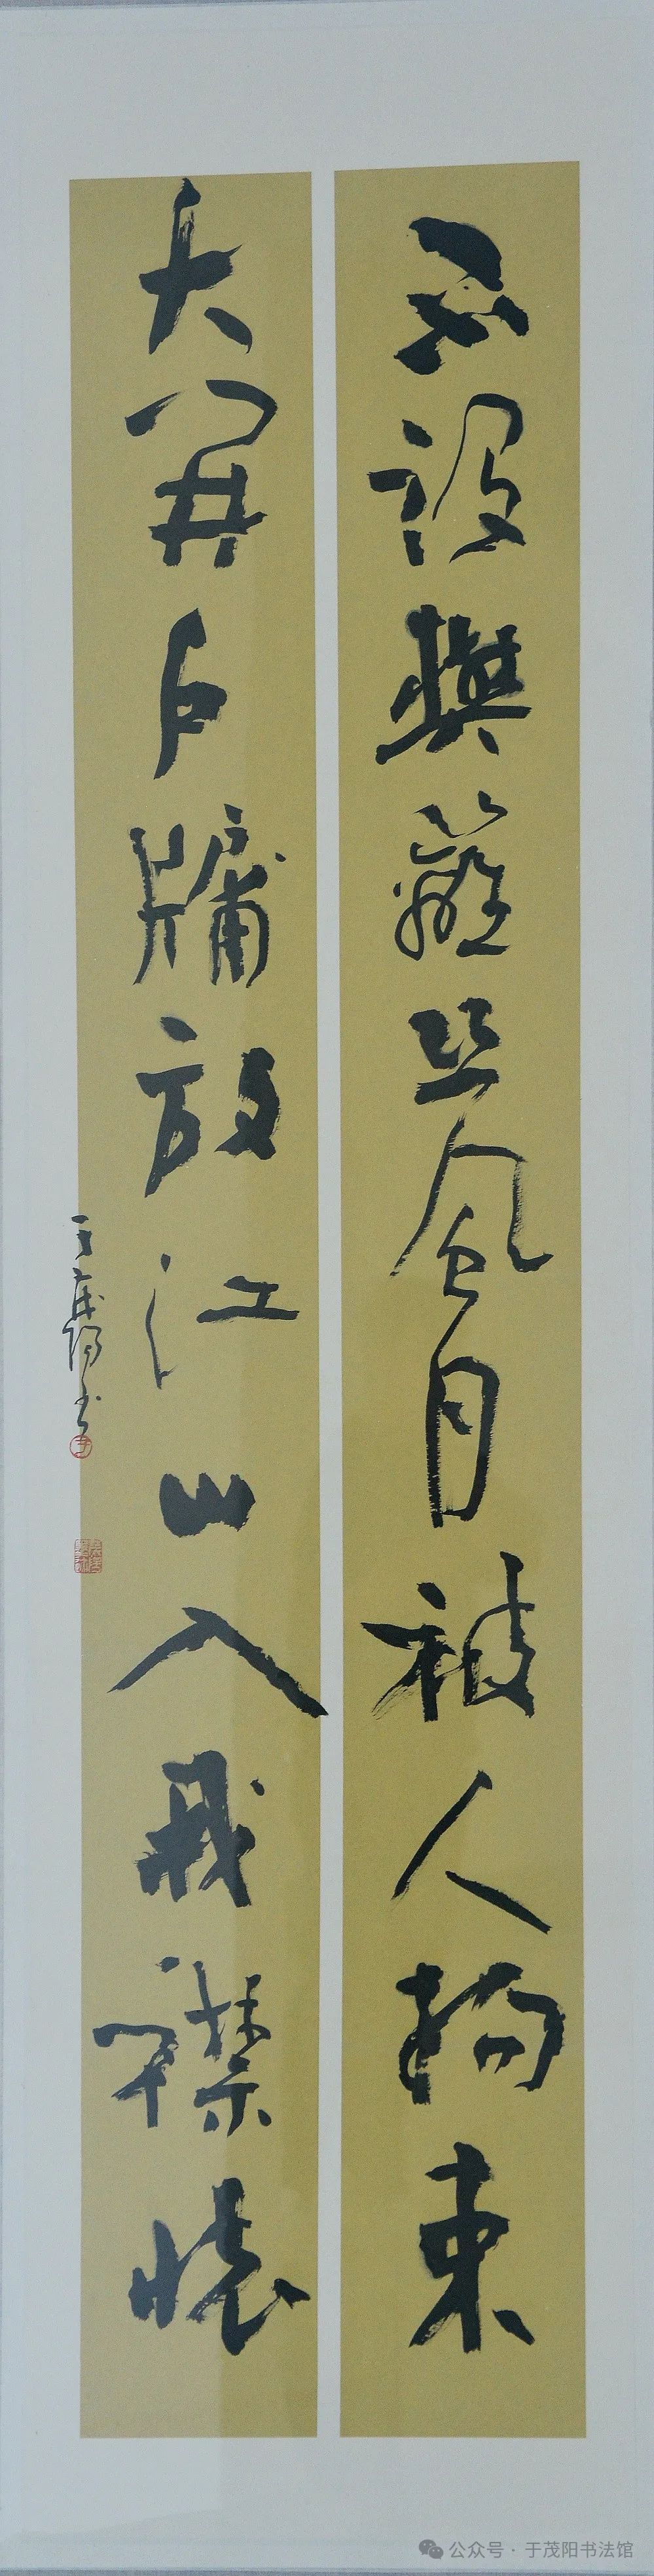 不设樊篱恐风月被人拘束
大开户牖放江山入我襟怀
于茂阳书
公众号·于茂阳书法馆